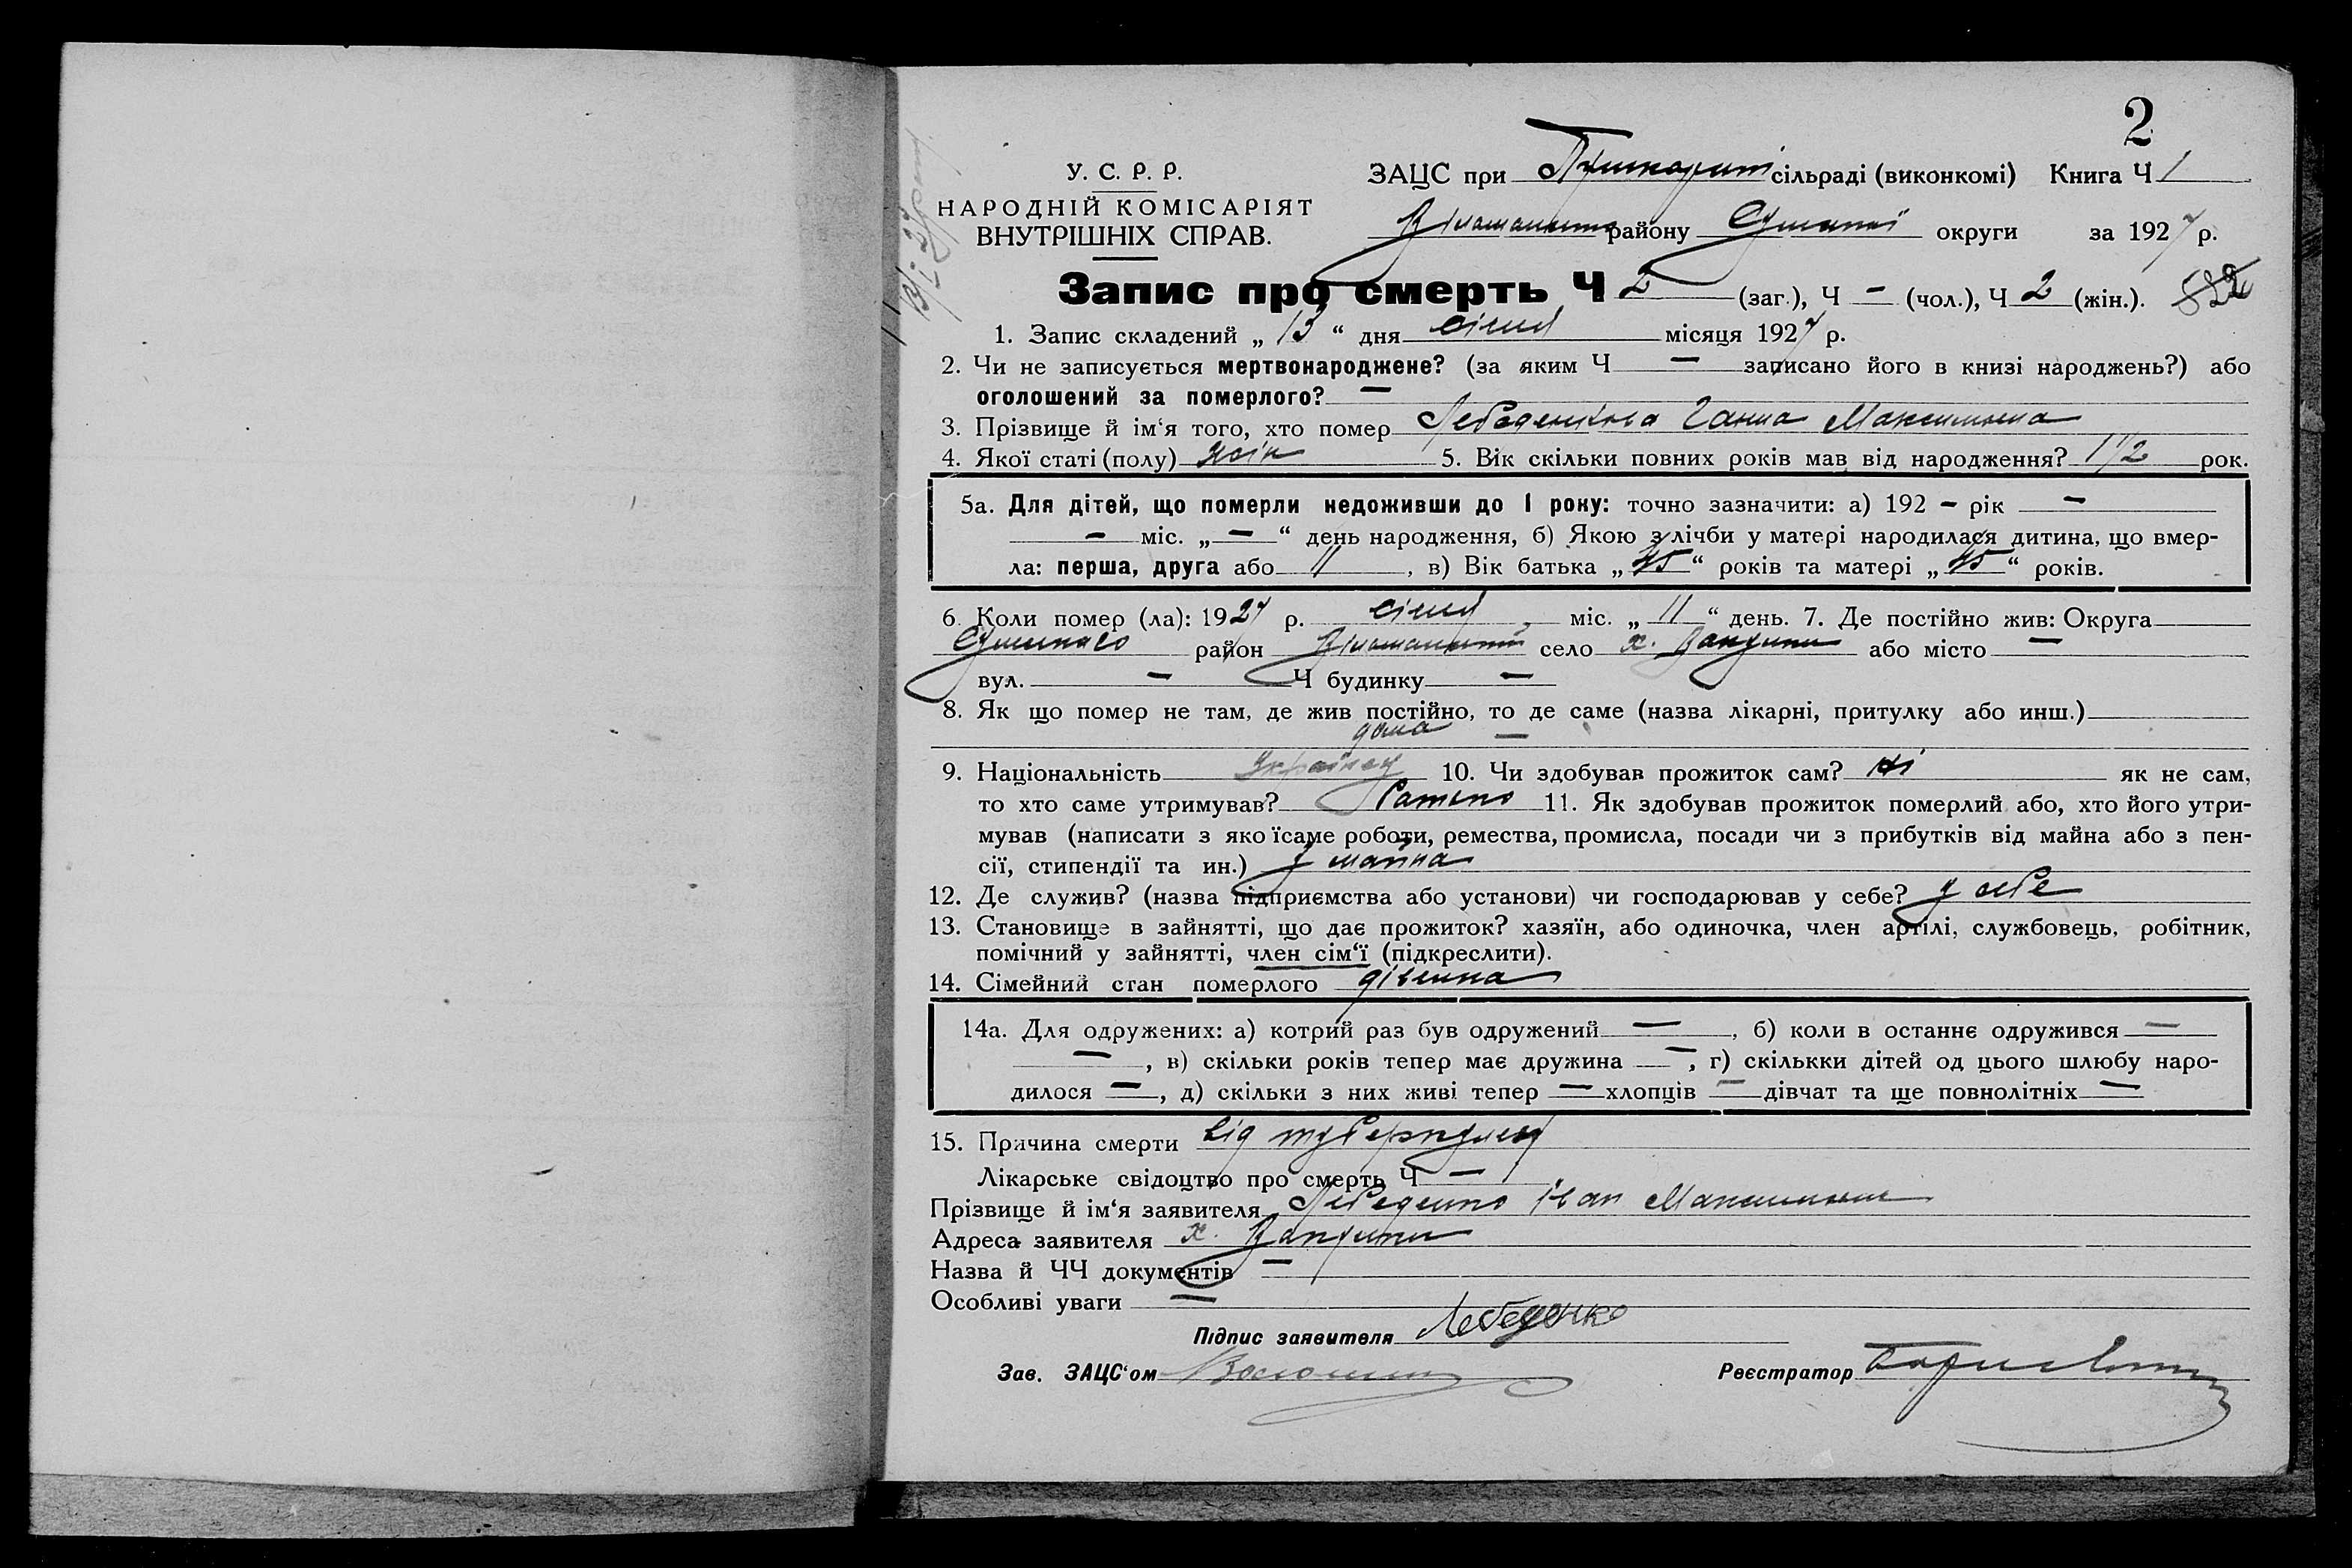 2
У. С. Р. Р.
НАРОДНІЙ КОМІСАРІЯТ
ВНУТРІШНІХ СПРАВ.
ЗАЦС при сільраді (виконкомі) Книга Ч 1
району Сумської округи за 1927 р.
Запис про смерть Ч 2 (заг.), Ч — (чол.), Ч 2 (жін.).
1. Запис складений „ 13 “ дня січня місяця 1927 р.
2. Чи не записується мертвонароджене? (за яким Ч — записано його в книзі народжень?) або
оголошений за померлого? —
3. Прізвище й ім‘я того, хто помер Лебеденкова Ганна Максимовна
4. Якої статі (полу) жін 5. Вік скільки повних років мав від народження? 1 1/2 рок.
5а. Для дітей, що померли недоживши до 1 року: точно зазначити: а) 192 – рік –
– міс. „ – “ день народження, б) Якою з лічби у матері народилася дитина, що вмер-
ла: перша, друга або 11, в) Вік батька „ 45 “ років та матері „ 45 “ років.
6. Коли помер (ла): 1927 р. січня міс. „ 11 “ день. 7. Де постійно жив: Округа
район село х. або місто —
вул. — Ч будинку —
8. Як що помер не там, де жив постійно, то де саме (назва лікарні, притулку або инш.)
дома —
9. Національність українец 10. Чи здобував прожиток сам? ні як не сам,
то хто саме утримував? батько 11. Як здобував прожиток померлий або, хто його утри-
мував (написати з якоїсаме роботи, ремества, промисла, посади чи з прибутків від майна або з пен-
сії, стипендії та ин.) з майна
12. Де служив? (назва підприємства або установи) чи господарював у себе? у себе
13. Становище в зайнятті, що дає прожиток? хазяїн, або одиночка, член артілі, службовець, робітник,
помічний у зайнятті, член сім‘ї (підкреслити).
14. Сімейний стан померлого дівчина
14а. Для одружених: а) котрий раз був одружений —, б) коли в останнє одружився —
—, в) скільки років тепер має дружина —, г) скількки дітей од цього шлюбу наро-
дилося —, д) скільки з них живі тепер — хлопців — дівчат та ще повнолітніх —
15. Причина смерти від туберкульозу
Лікарське свідоцтво про смерть Ч —
Прізвище й ім‘я заявителя Лебеденко Іван Максимович
Адреса заявителя х.
Назва й ЧЧ документів —
Особливі уваги —
Підпис заявителя Лебеденко
Зав. ЗАЦС‘ом
Реєстратор